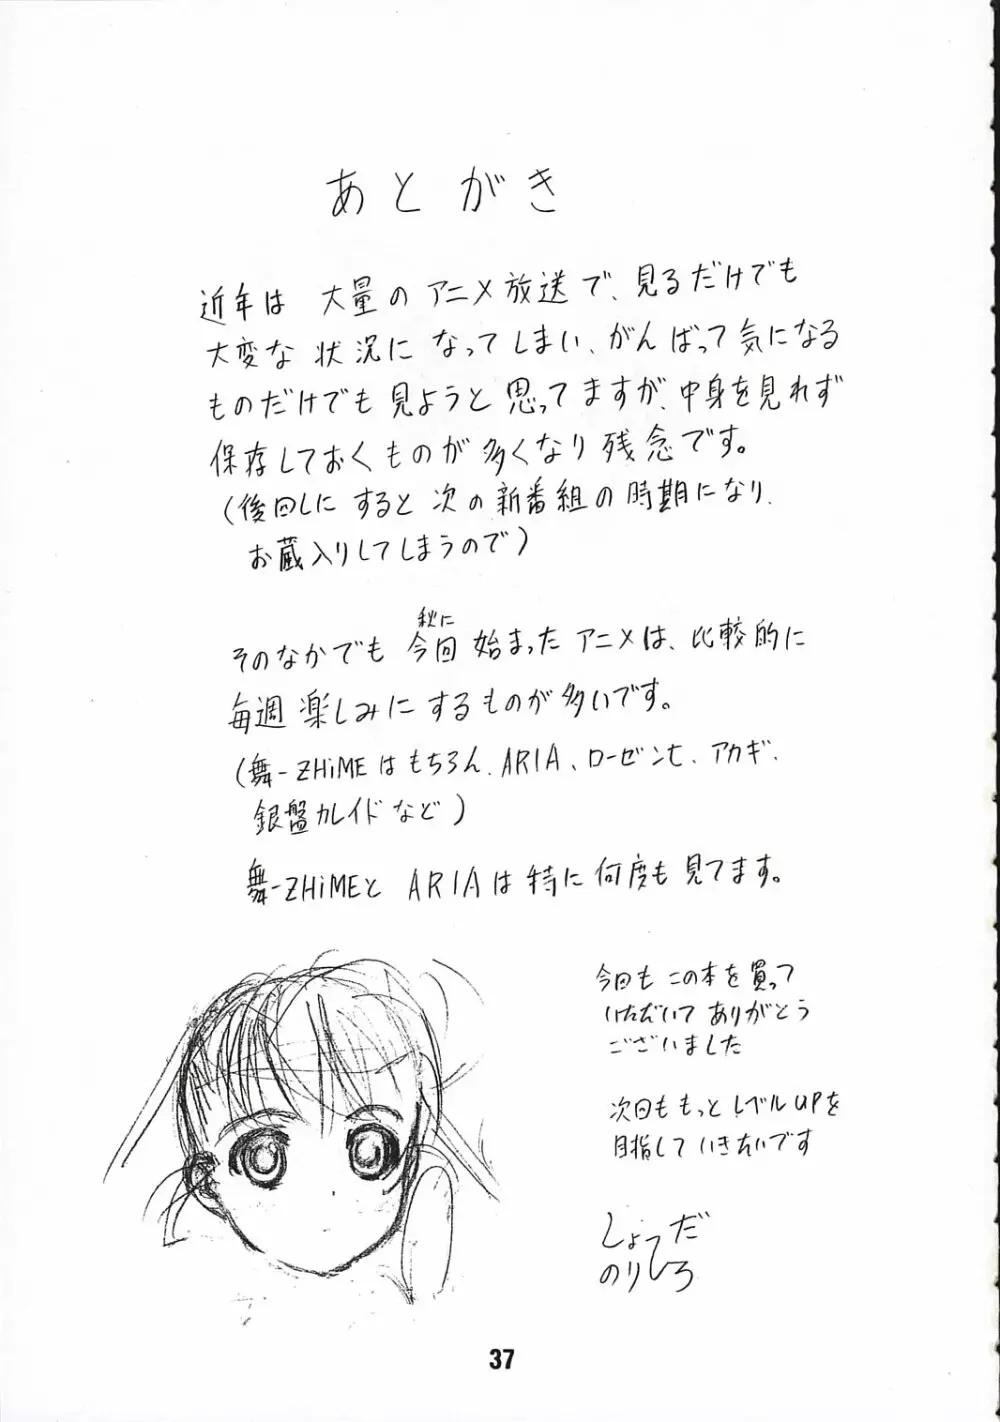 あとがき
近年は 大量のアニメ放送で、見るだけでも
大変な 状況に なってしまい、がんばって気になる
ものだけでも 見ようと 思ってますが、中身を見れず
保存しておくものが多くなり 残念です。
(後回しに すると 次の新番組の時期になり、
お蔵入りしてしまうので)
秋に
そのなかでも 今回 始まった アニメは、比較的に
毎週 楽しみに するものが多いです。
(舞-ZHiMEはもちろん、ARIA、ローゼンt、アカギ、
銀盤カレイド など)
舞-ZHiMEと ARIAは特に何度も見てます。
今回も この本を買って
いただいて ありがとう
ございました
次回も もっと レベルUPを
目指して いきたいです
しょうだ
のりひろ
37